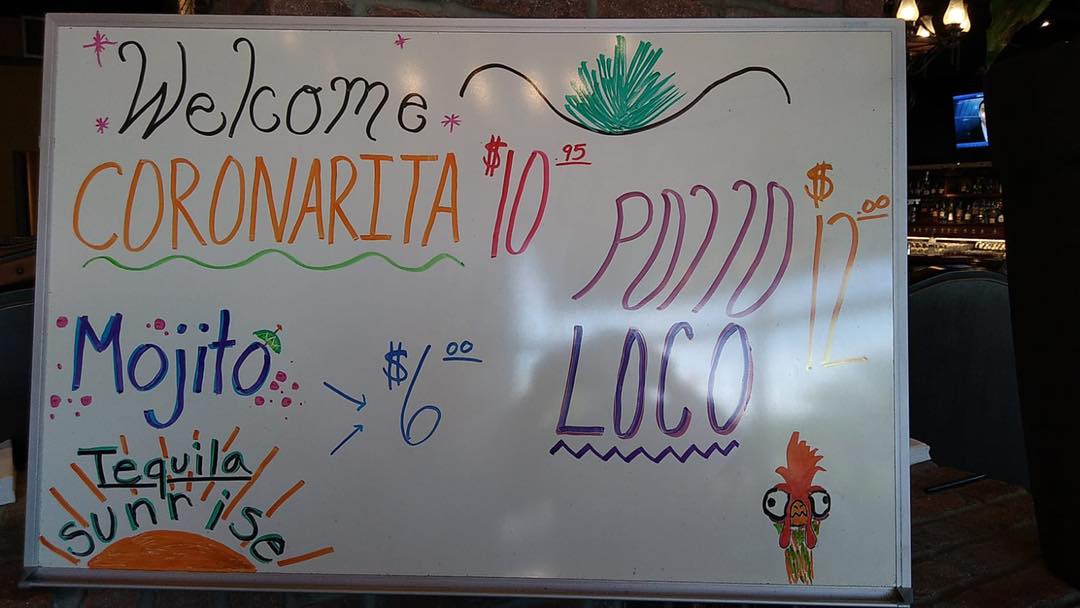 Welcome
CORONARITA $10.95
POLLO $12.00
LOCO
Mojito
$6.00
Tequila
sunrise